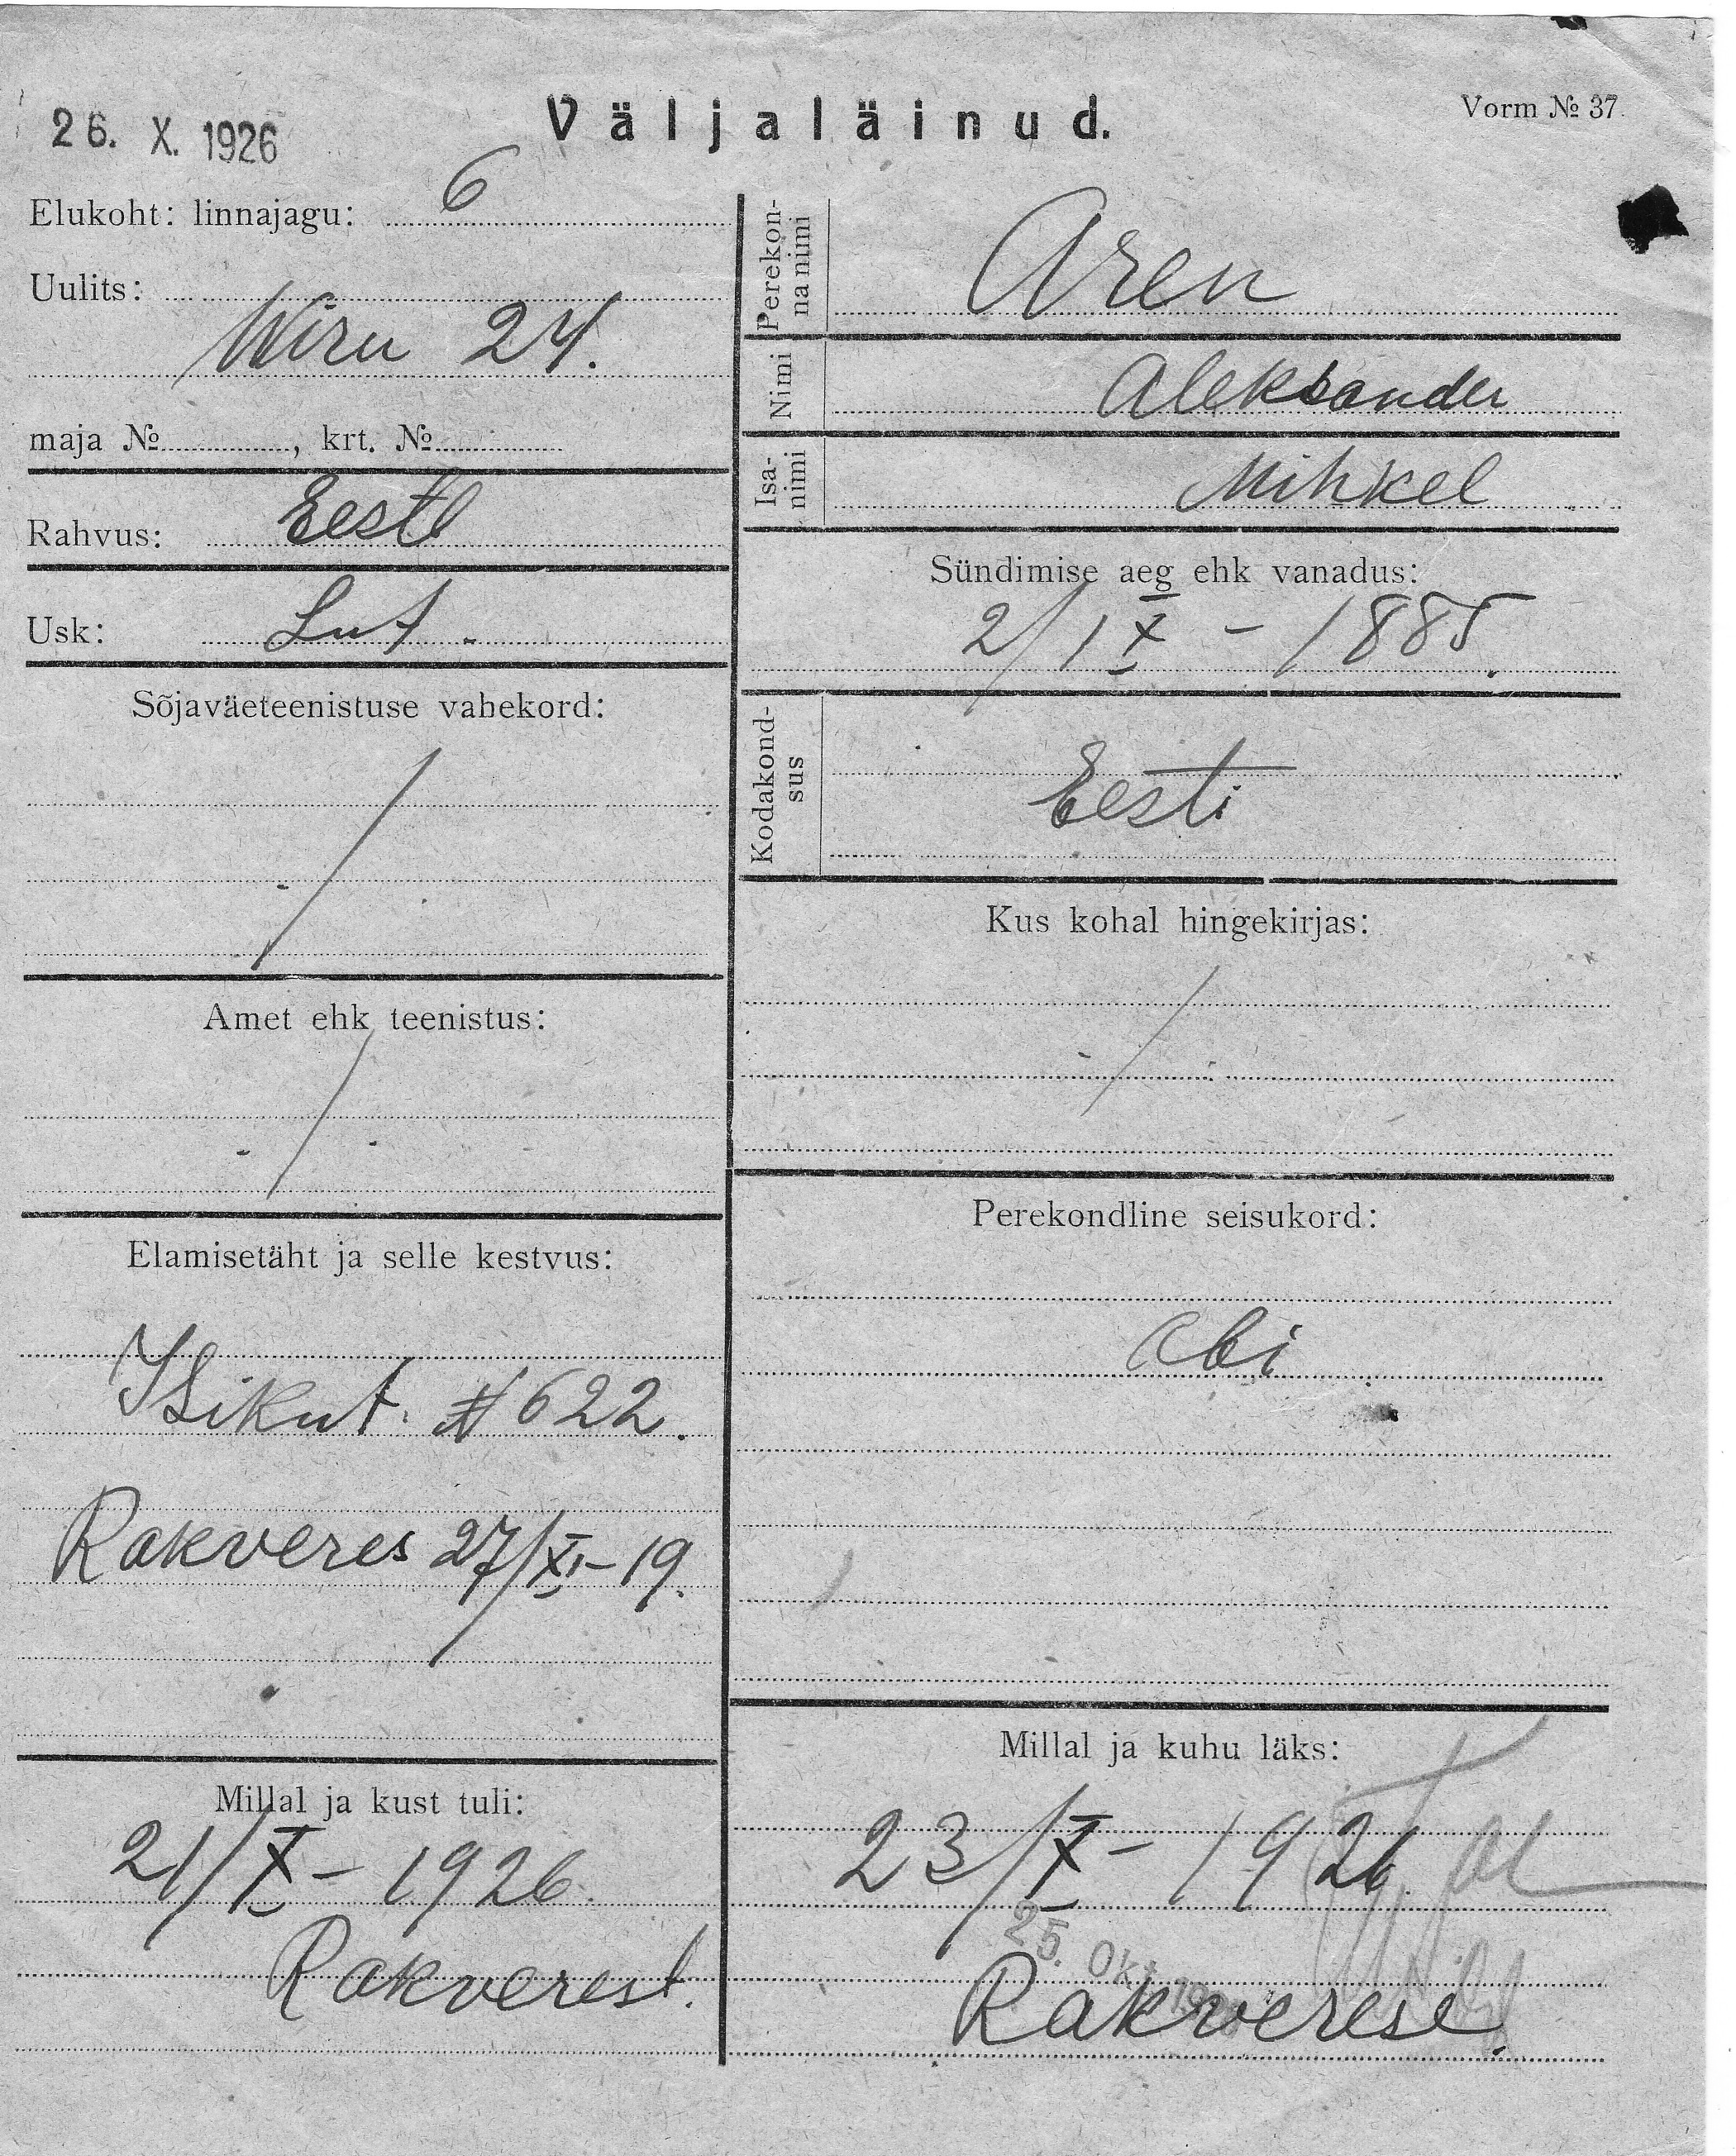 26. X. 1926
Väljaläinud.
Vorm № 37.
Elukoht: linnajagu: 6
Uulits:
Wiru 24.
maja №, krt. №
Rahvus: Eesti
Usk: Lut.
Sõjaväeteenistuse vahekord:
Amet ehk teenistus:
Elamisetäht ja selle kestvus:
Isikut. # 622.
Rakveres 27/XI-19.
Millal ja kust tuli:
21/X - 1926.
Rakverest.
Perekonna nimi
Aren
Nimi
Aleksander
Isa-nimi
Mihkel
Sündimise aeg ehk vanadus:
2/IX - 1885.
Kodakond-sus
Eesti
Kus kohal hingekirjas:
Perekondline seisukord:
abi
Millal ja kuhu läks:
23/X - 1926
25. Okt. 1926
Rakverese.